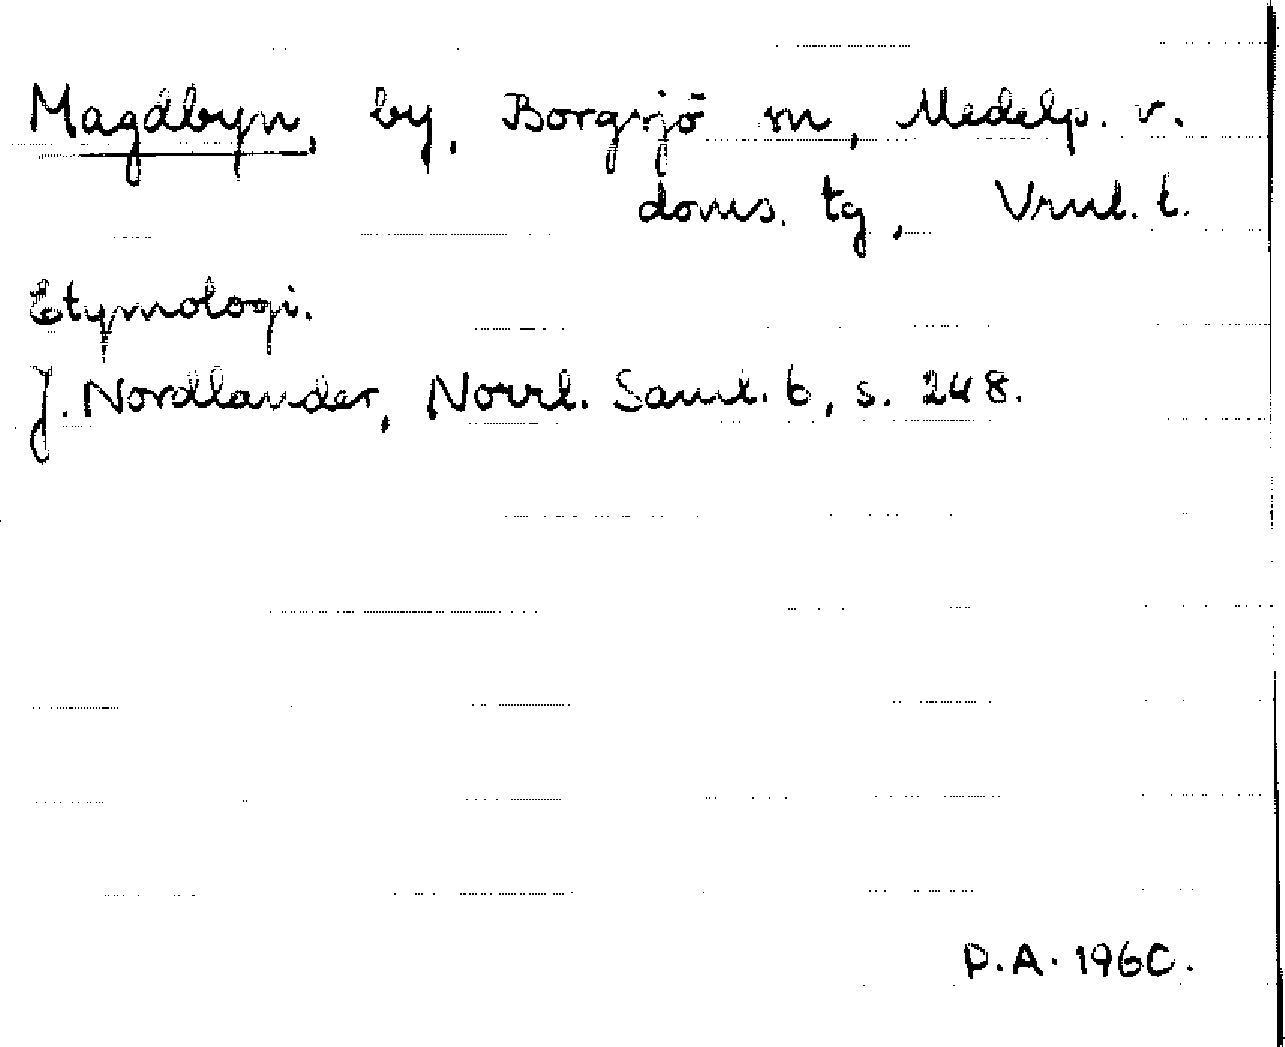 Magdbyn, by, Borgsjö sn, Medelp. v.
doms. tg, Vrnl. l.
Etymologi.
J. Nordlander, Norrl. Saml. 6, s. 248.
P.A. 1960.